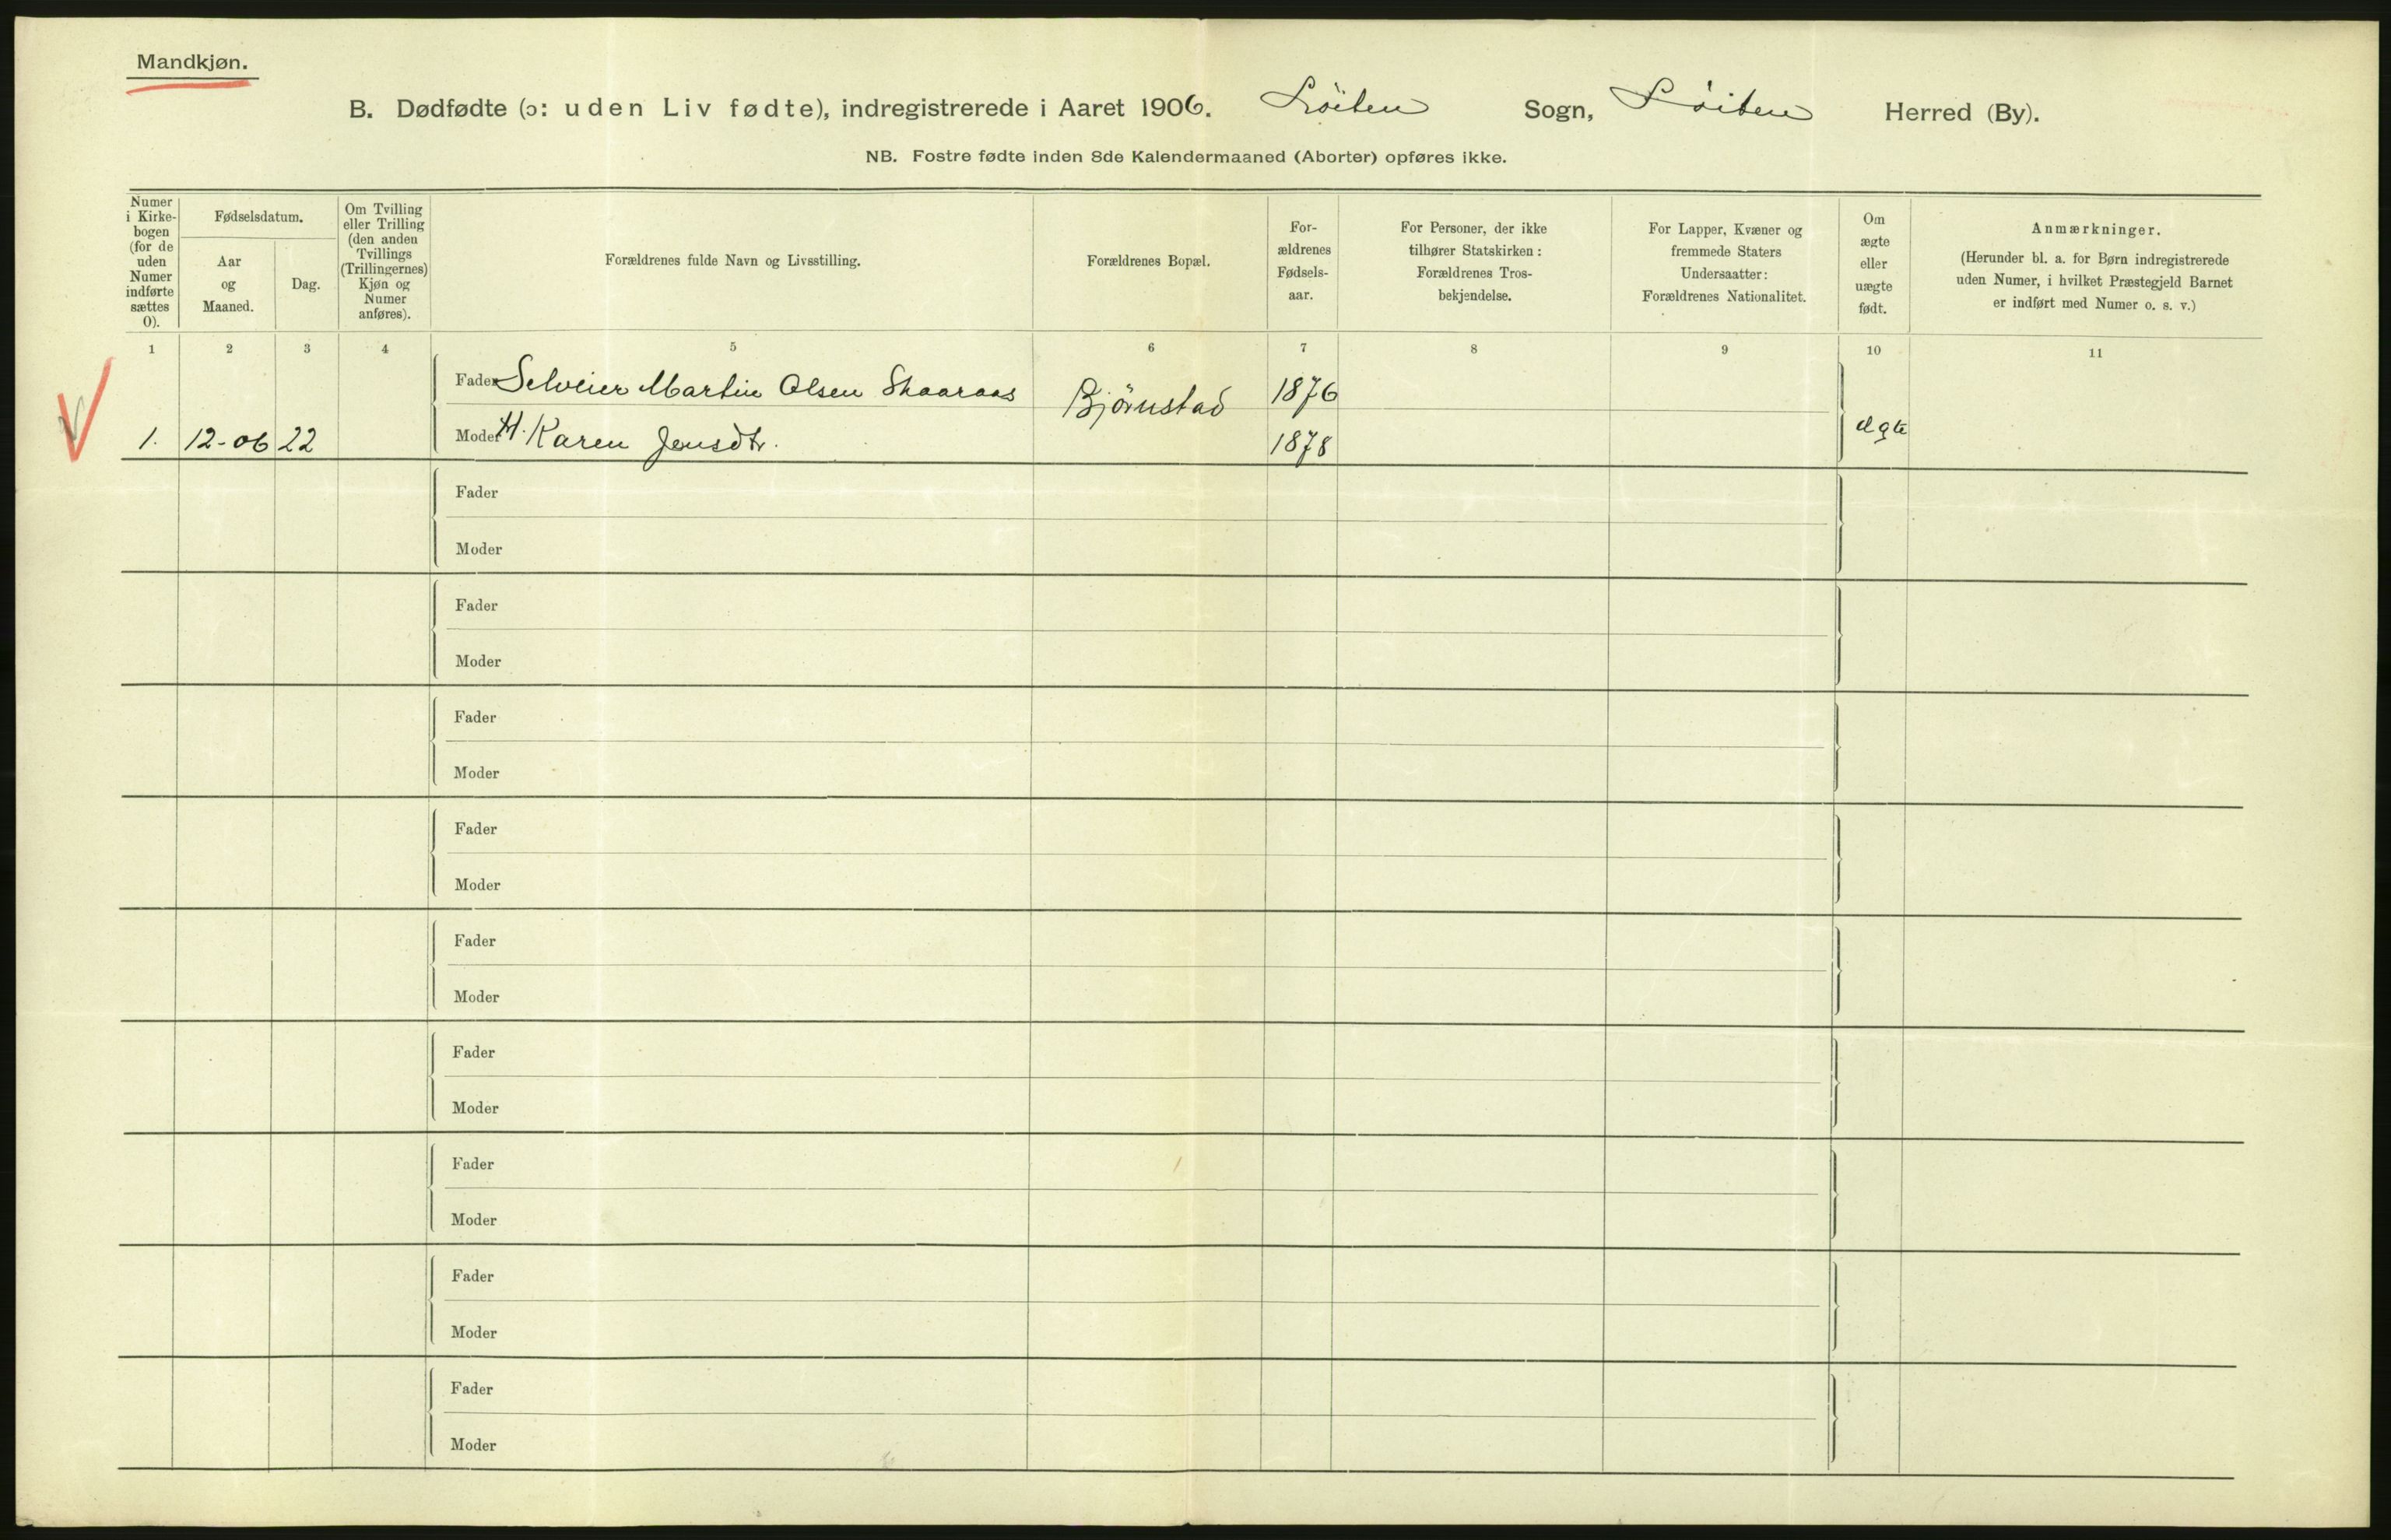 Mandkjøn.
B. Dødfødte (ɔ: uden Liv fødte), indregistrerede i Aaret 1906. Löiten Sogn, Löiten Herred (By).
NB. Fostre fødte inden 8de Kalendermaaned (Aborter) opføres ikke.
Numer i Kirke-bogen (for de uden Numer indførte sættes 0).
Fødselsdatum.
Aar og Maaned.
Dag.
Om Tvilling eller Trilling (den anden Tvillings (Trillingernes) Kjøn og Numer anføres).
Forældrenes fulde Navn og Livsstilling.
Forældrenes Bopæl.
For-ældrenes Fødsels-aar.
For Personer, der ikke tilhører Statskirken: Forældrenes Tros-bekjendelse.
For Lapper, Kvæner og fremmede Staters Undersaatter: Forældrenes Nationalitet.
Om ægte eller uægte født.
Anmærkninger.
(Herunder bl. a. for Børn indregistrerede uden Numer, i hvilket Præstegjeld Barnet er indført med Numer o. s. v.)
1 2 3 4 5 6 7 8 9 10 11
Fader Selveier Martin Olsen Skaaraas Björnstad 1876
1. 12-06 22 Moder H. Karen Jensdtr. 1878 ægte
Fader
Moder
Fader
Moder
Fader
Moder
Fader
Moder
Fader
Moder
Fader
Moder
Fader
Moder
Fader
Moder
Fader
Moder